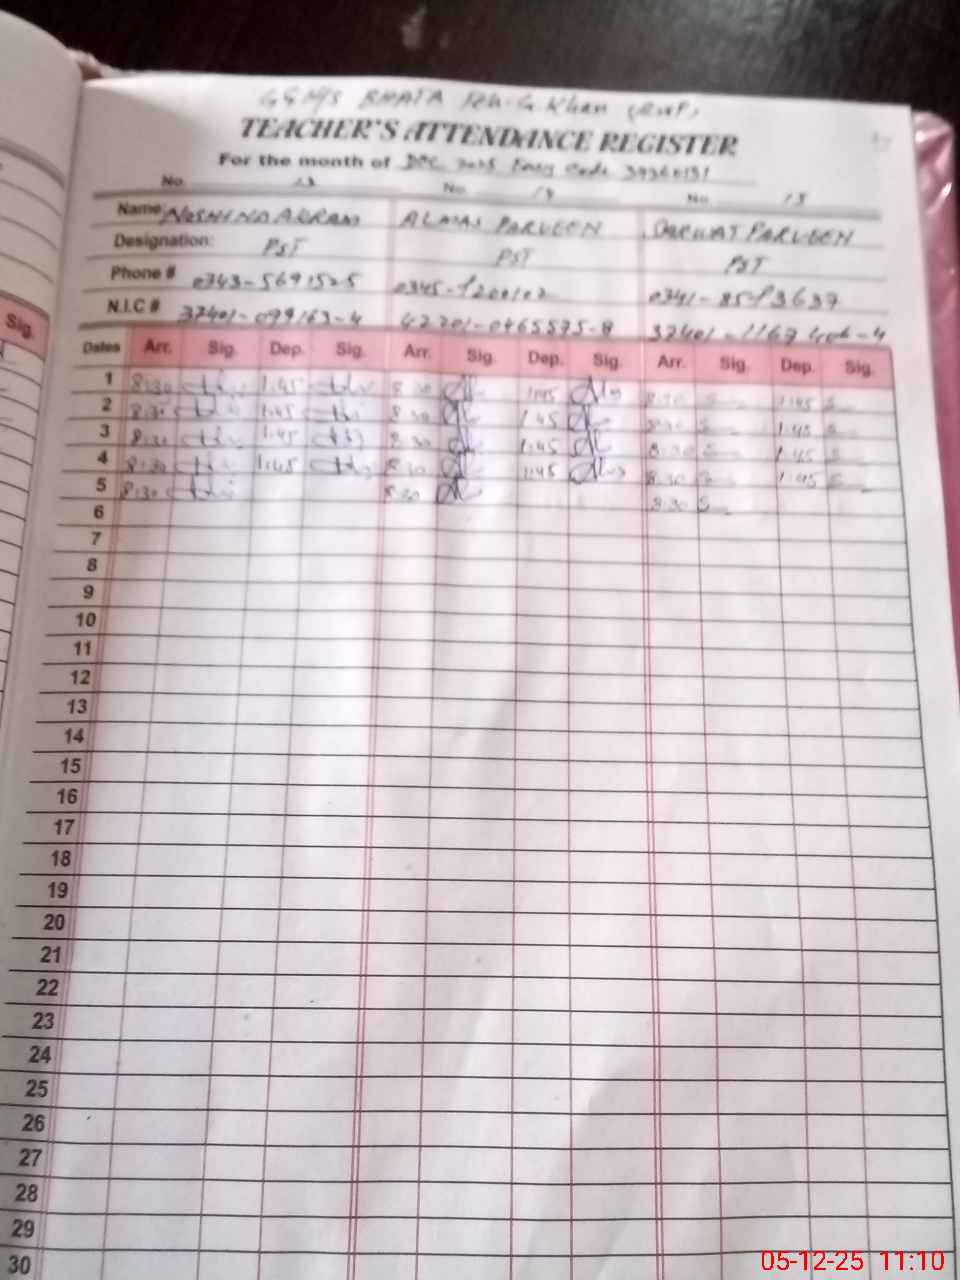 BHATA
TEACHER'S ATTENDANCE REGISTER
For the month of DEC 2025 Emis Code 37360131
No. 13 No. 13 No. 15
Name: NOSHENA AKRAM ALMAS PARVEEN SARWAT PARVEEN
Designation: PST PST PST
Phone # 0343-5691525 0345- 0341-
N.I.C # 37401-099163-4 42201-0465575-8 37401-
Sig.
Dates Arr. Sig. Dep. Sig. Arr. Sig. Dep. Sig. Arr. Sig. Dep. Sig.
1 8:30 1:45 8:30 1:45 8:30 1:45
2 8:30 1:45 8:30 1:45 8:30 1:45
3 8:30 1:45 8:30 1:45 8:30 1:45
4 8:30 1:45 8:30 1:45 8:30 1:45
5 8:30 8:30 8:30
6
7
8
9
10
11
12
13
14
15
16
17
18
19
20
21
22
23
24
25
26
27
28
29
30
05-12-25 11:10